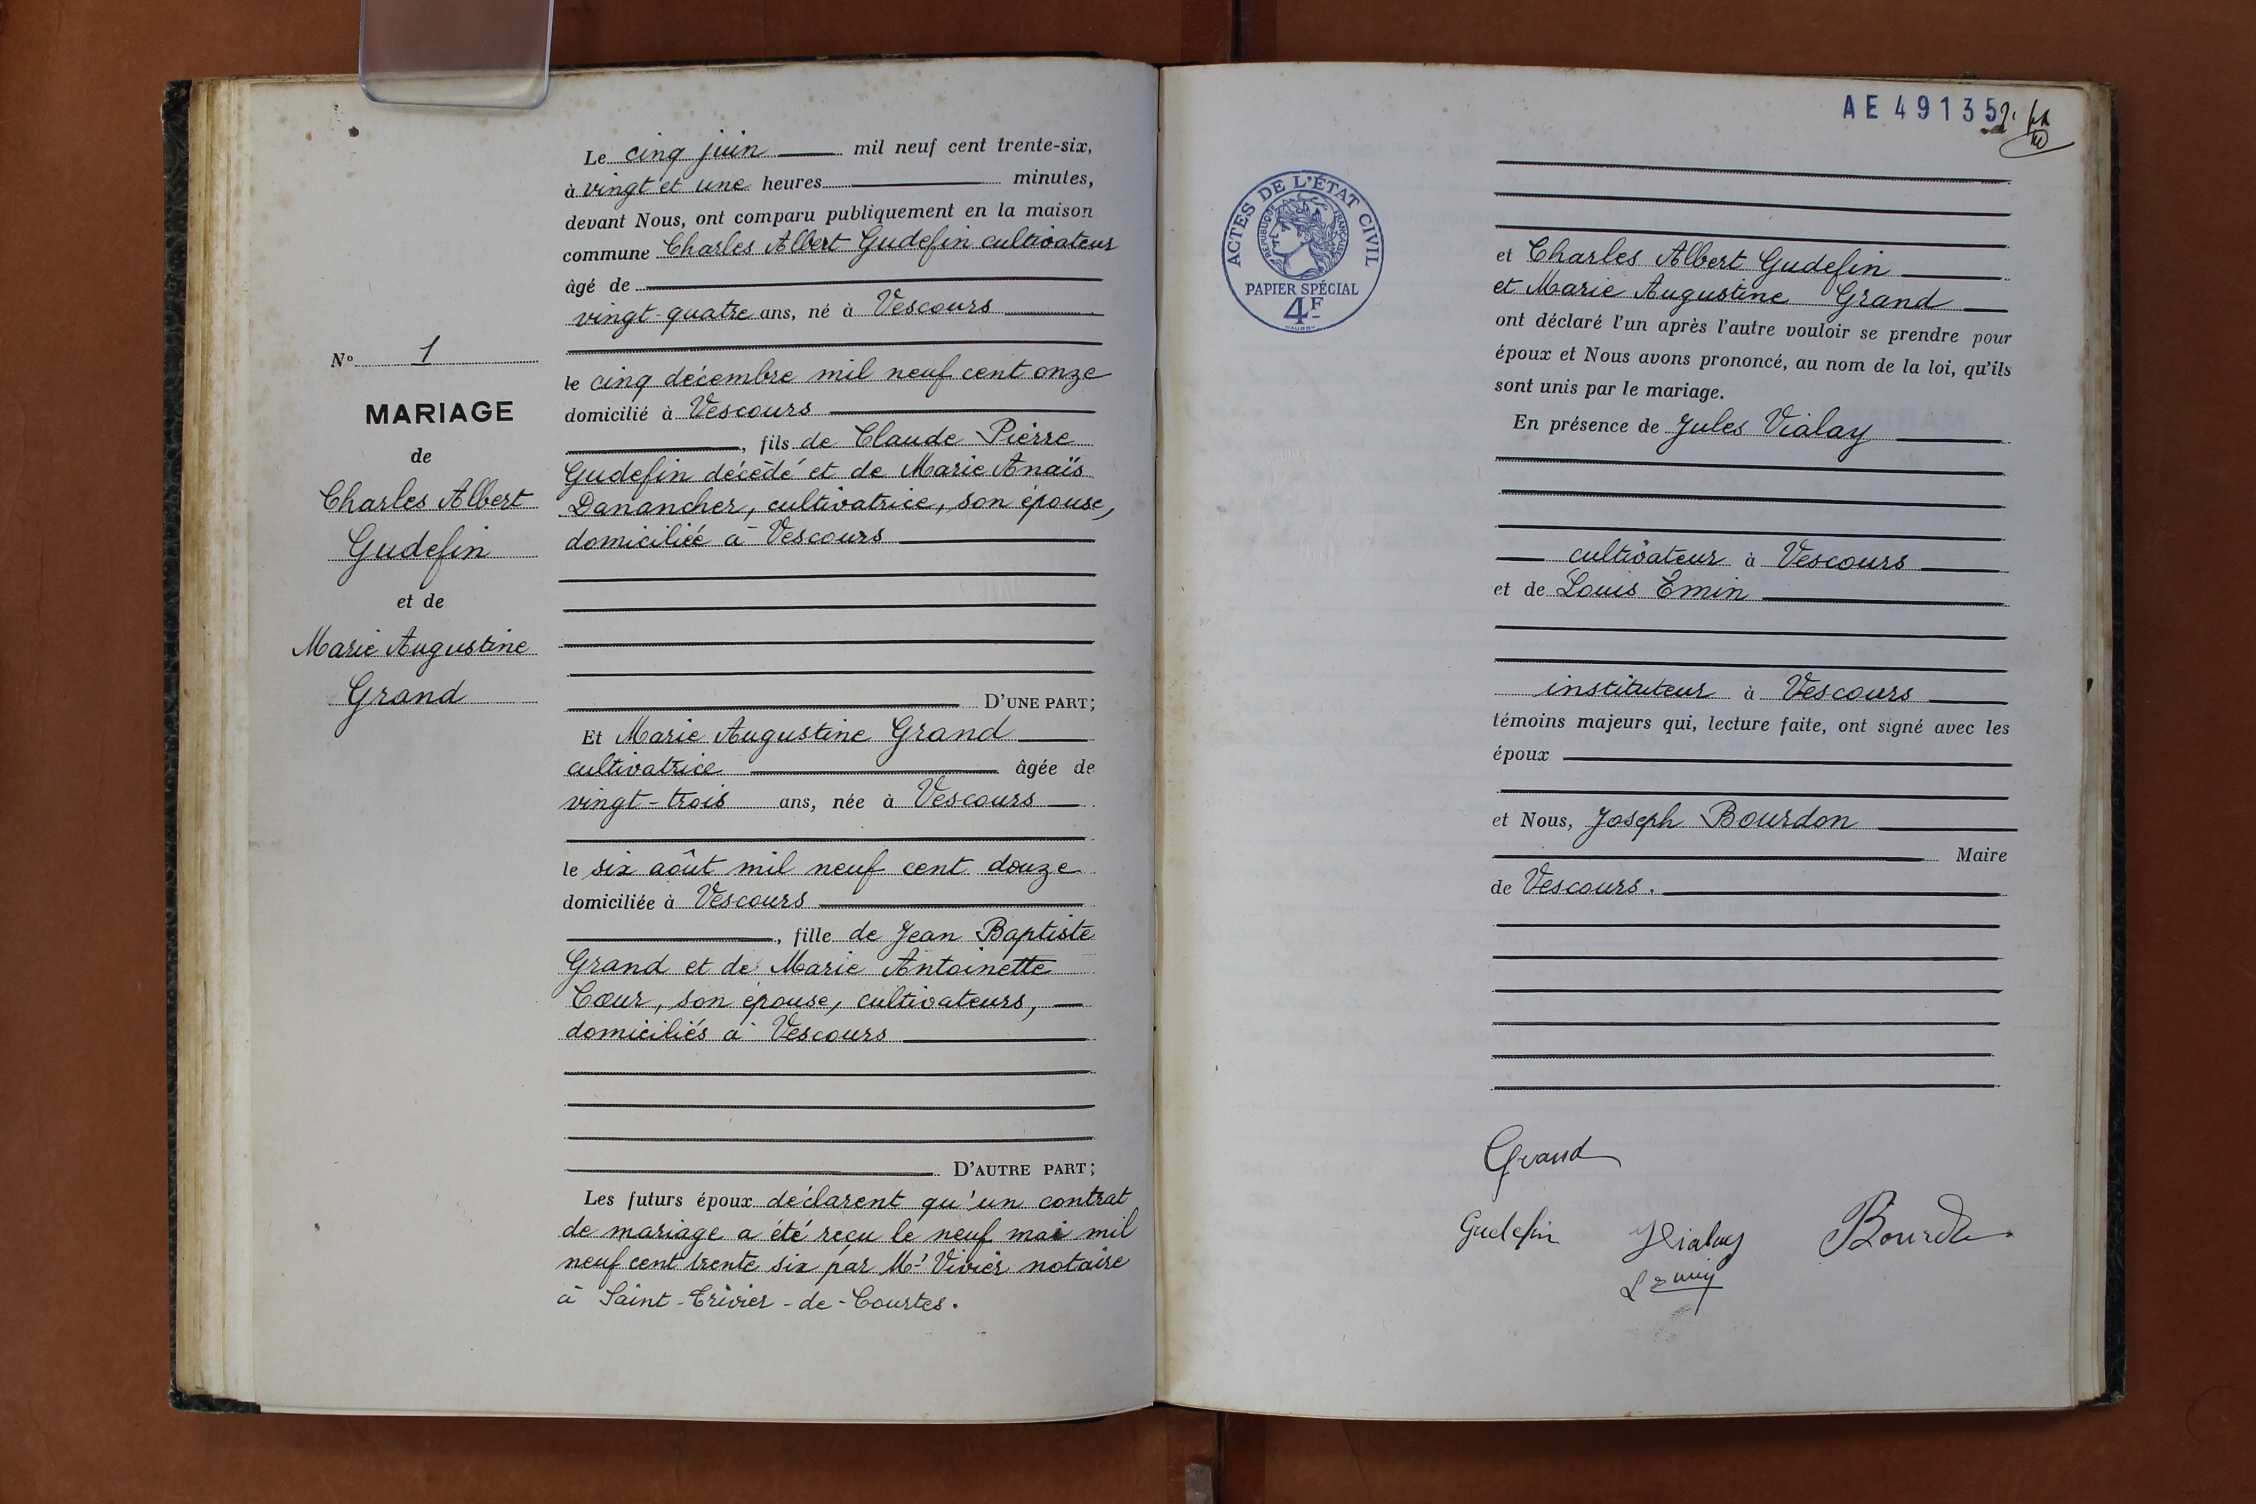 Le cinq juin mil neuf cent trente-six,
à vingt et une heures minutes,
devant Nous, ont comparu publiquement en la maison
commune Charles Albert Gudefin cultivateur
âgé de
vingt-quatre ans, né à Vescours
le cinq décembre mil neuf cent onze
domicilié à Vescours
, fils de Claude Pierre
Gudefin décédé et de Marie Anaïs
Danancher, cultivatrice, son épouse,
domiciliée à Vescours
D'UNE PART;
Et Marie Augustine Grand
cultivatrice âgée de
vingt-trois ans, née à Vescours
le six août mil neuf cent douze
domiciliée à Vescours
, fille de Jean Baptiste
Grand et de Marie Antoinette
Cœur, son épouse, cultivateurs,
domiciliés à Vescours
D'AUTRE PART;
Les futurs époux déclarent qu'un contrat
de mariage a été reçu le neuf mai mil
neuf cent trente six par Me Vivier notaire
à Saint-Trivier-de-Courtes.
No 1
MARIAGE
de
Charles Albert
Gudefin
et de
Marie Augustine
Grand
AE 49135
ACTES DE L'ÉTAT CIVIL
RÉPUBLIQUE FRANÇAISE
PAPIER SPÉCIAL
4F
et Charles Albert Gudefin
et Marie Augustine Grand
ont déclaré l'un après l'autre vouloir se prendre pour
époux et Nous avons prononcé, au nom de la loi, qu'ils
sont unis par le mariage.
En présence de Jules Vialay
cultivateur à Vescours
et de Louis Emin
instituteur à Vescours
témoins majeurs qui, lecture faite, ont signé avec les
époux
et Nous, Joseph Bourdon
Maire
de Vescours.
Grand
Gudefin JVialay Bourdon
L Emin